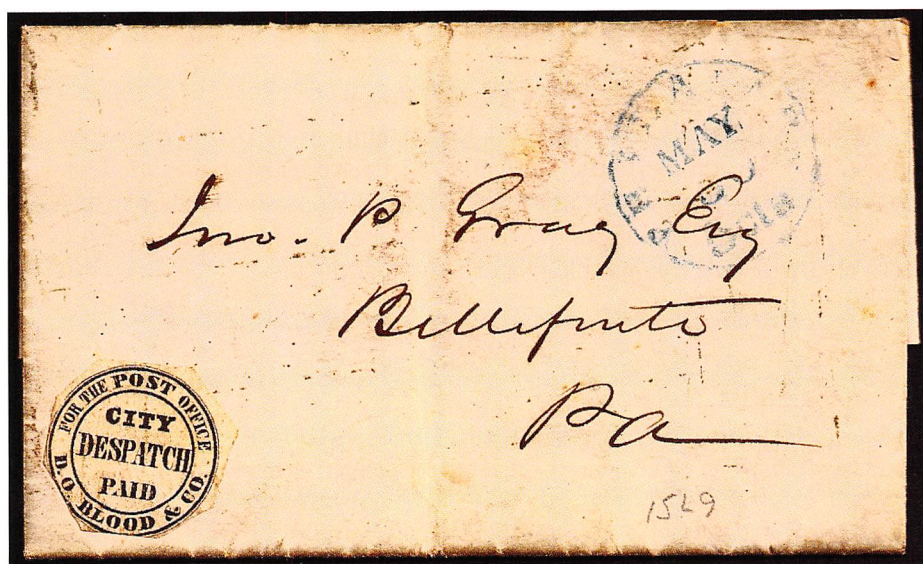 MAY
5cts
Jno. P Gray Esq
Bellefonte
Pa
FOR THE POST OFFICE
CITY
DESPATCH
PAID
D.O. BLOOD & CO.
15L9